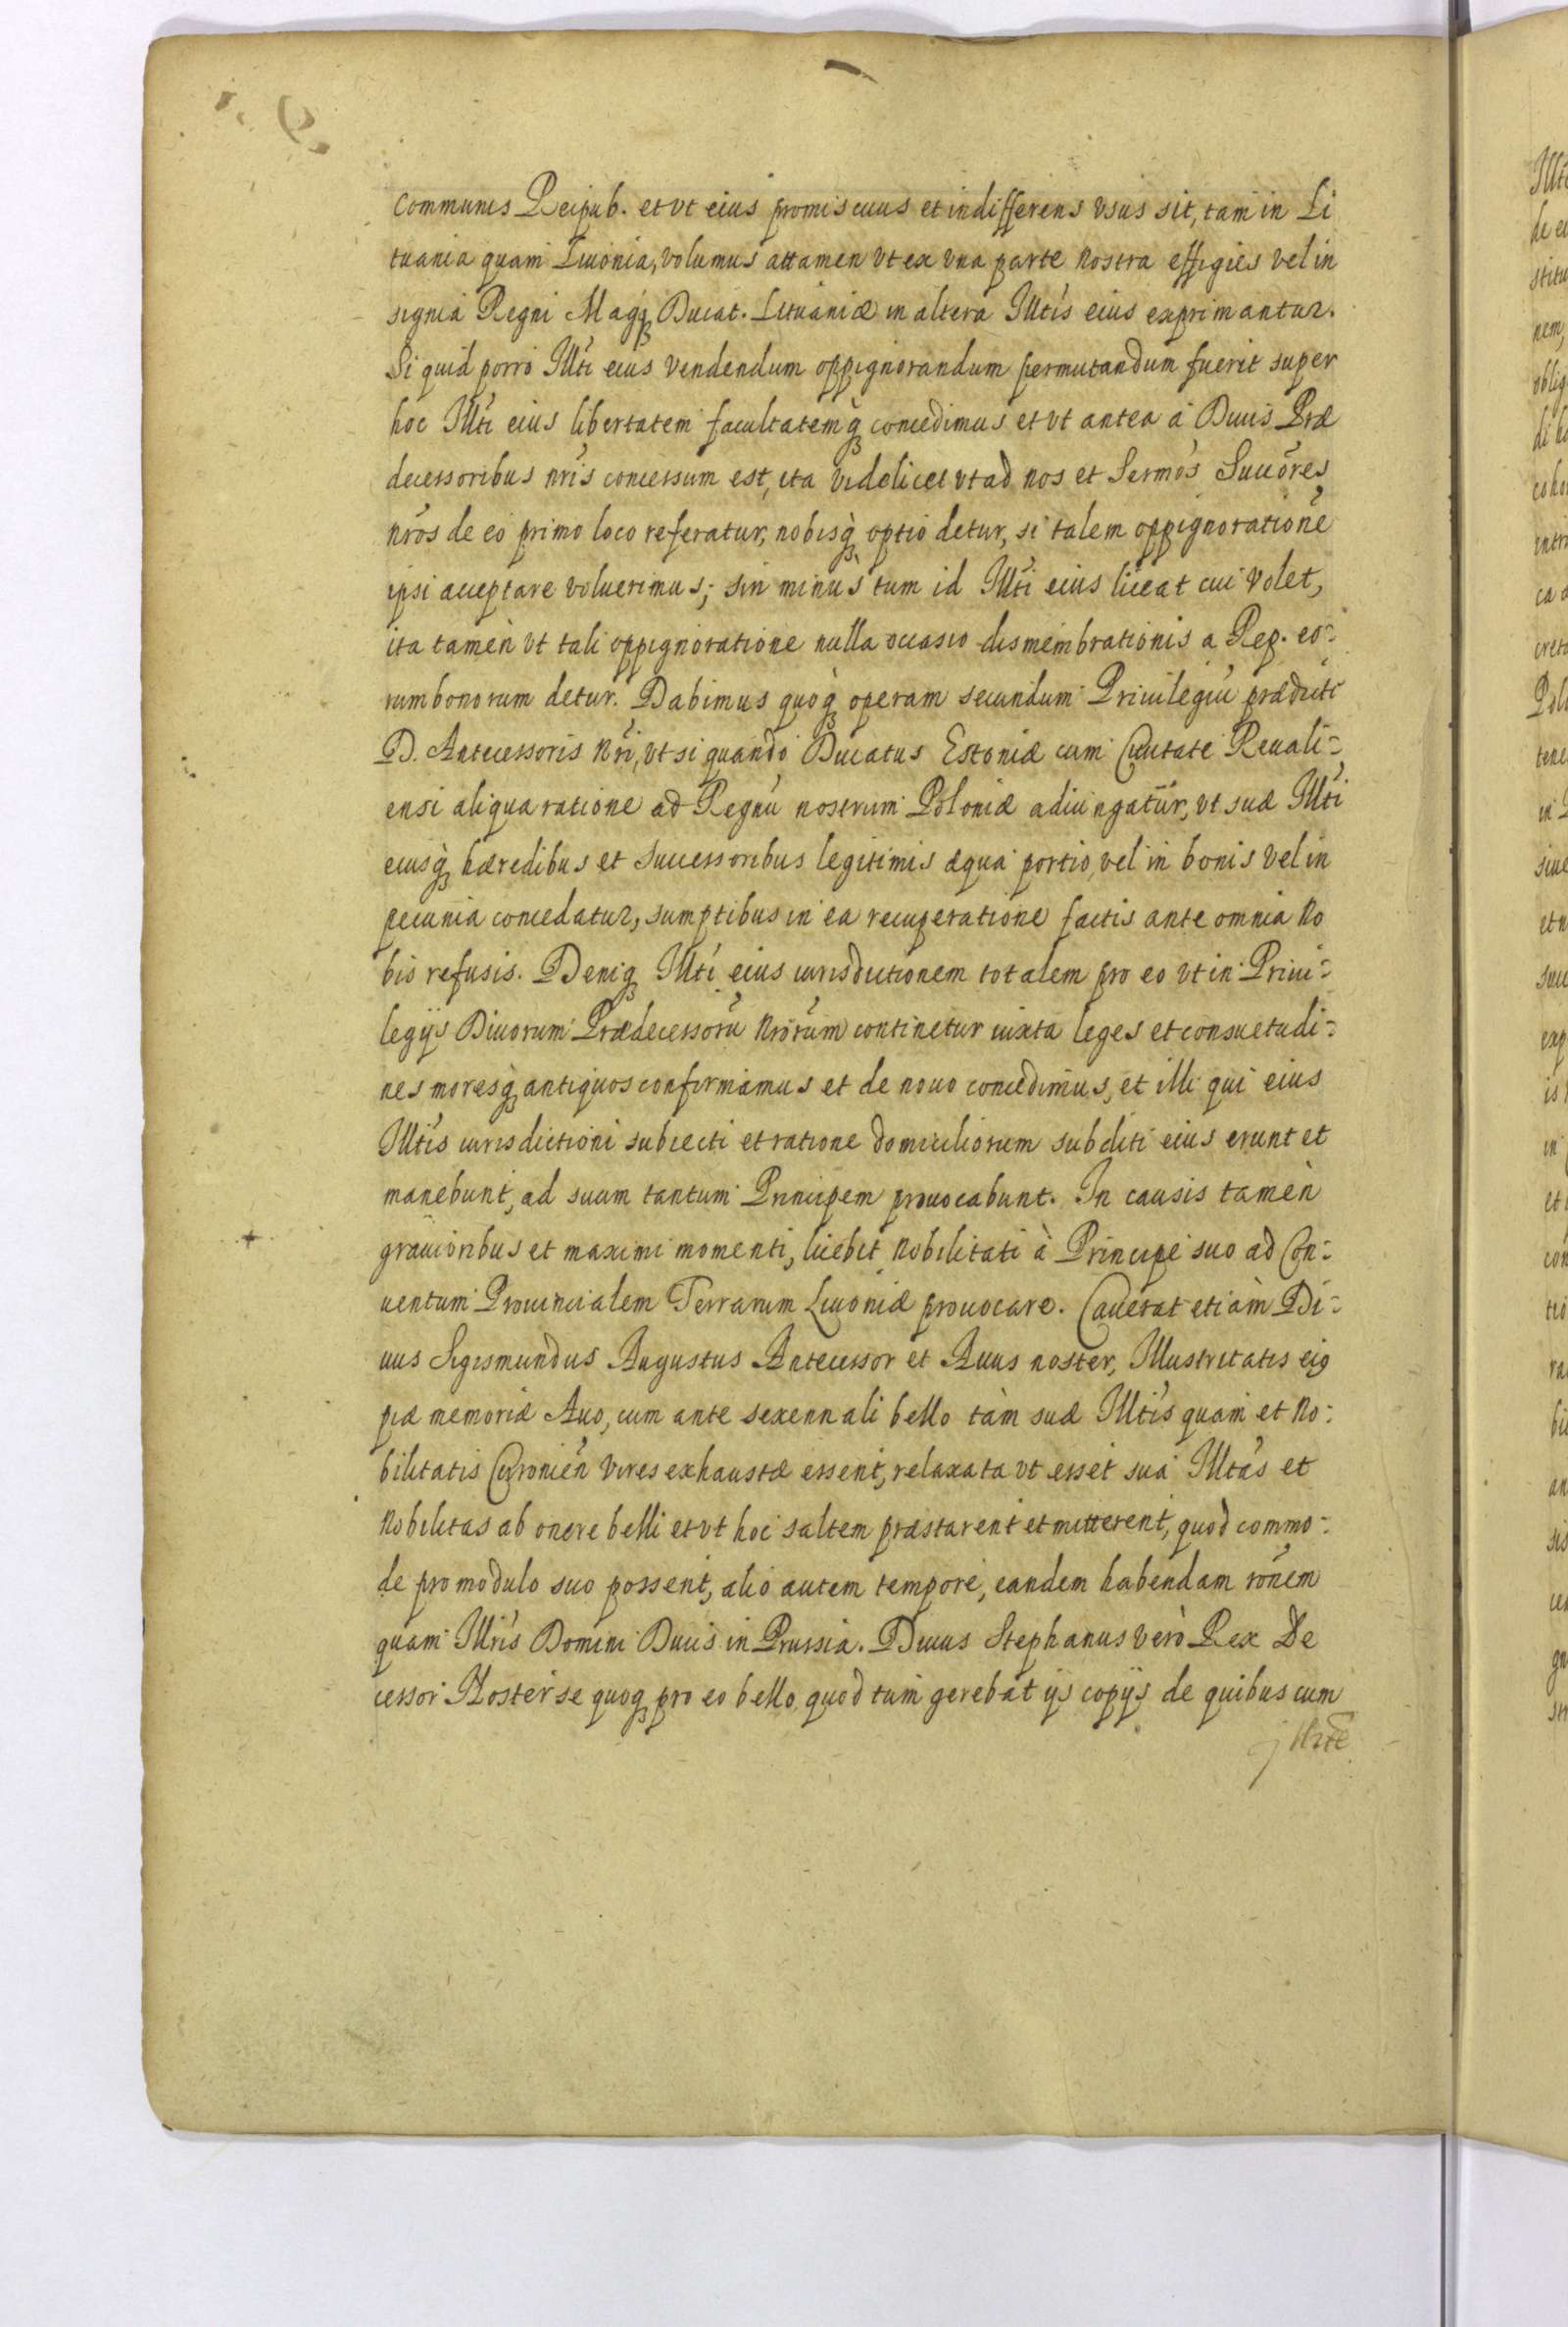 communis Reipub. et vt eius promiscuus et indifferens vsus sit, tam in Li
tuania quam Liuonia, volumus attamen vt ex vna parte nostra effigies vel in
signia Regni Magq Ducat. Lituaniæ in altera Illtis eius exprimantur.
Si quid porro Illti eius vendendum oppignorandum permutandum fuerit super
hoc Illti eius libertatem facultatemq concedimus et vt antea à Diuis Præ
decessoribus nris concessum est, ita videlicet vt ad nos et Sermos Succōres
nros de eo primo loco referatur, nobisq optio detur, si talem oppignorationē
ipsi acceptare voluerimus; sin minùs tum id Illti eius liceat cui volet,
ita tamèn vt tali oppignoratione nulla occasio dismembrationis a Rep. eo:
rum bonorum detur. Dabimus quoq operam secundum Priuilegiū prædicti
D. Antecessoris Nri, vt si quando Ducatus Estoniæ cum Ciuitate Reuali:
ensi aliqua ratione ad Regnū nostrum Poloniæ adiungatur, vt suæ Illti
eiusq hæredibus et successoribus legitimis æqua portio, vel in bonis vel in
pecunia concedatur, sumptibus in ea recuperatione factis ante omnia No
bis refusis. Deniq Illti eius iurisdictionem totalem pro eo vt in Priui:
legijs Diuorum Prædecessorū Nrorum continetur iuxta leges et consuetudi:
nes moresq antiquos confirmamus et de nouo concedimus, et illi qui eius
Illtis iurisdictioni subiecti et ratione domiciliorum subditi eius erunt et
manebunt, ad suum tantum Principem prouocabunt. In causis tamèn
grauioribus et maximi momenti, licebit Nobilitati à Principe suo ad Con:
uentum Prouincialem Terrarum Liuoniæ prouocare. Cauerat etiàm Di:
uus Sigismundus Augustus Antecessor et Auus noster, Illustritatis eig
piæ memoriæ Auo, cum ante sexennali bello tàm suæ Illtis quam et No:
bilitatis Curoniēn vires exhaustæ essent, relaxata vt esset sua Illtas et
Nobilitas ab onere belli et vt hoc saltem præstarent et mitterent, quod commo:
de pro modulo suo possent, alio autem tempore, eandem habendam rōnem
quam Illris Domini Ducis in Prussia. Diuus Stephanus verò Rex De
cessor Noster se quoq pro eo bello quod tum gerebat ijs copijs de quibus cum